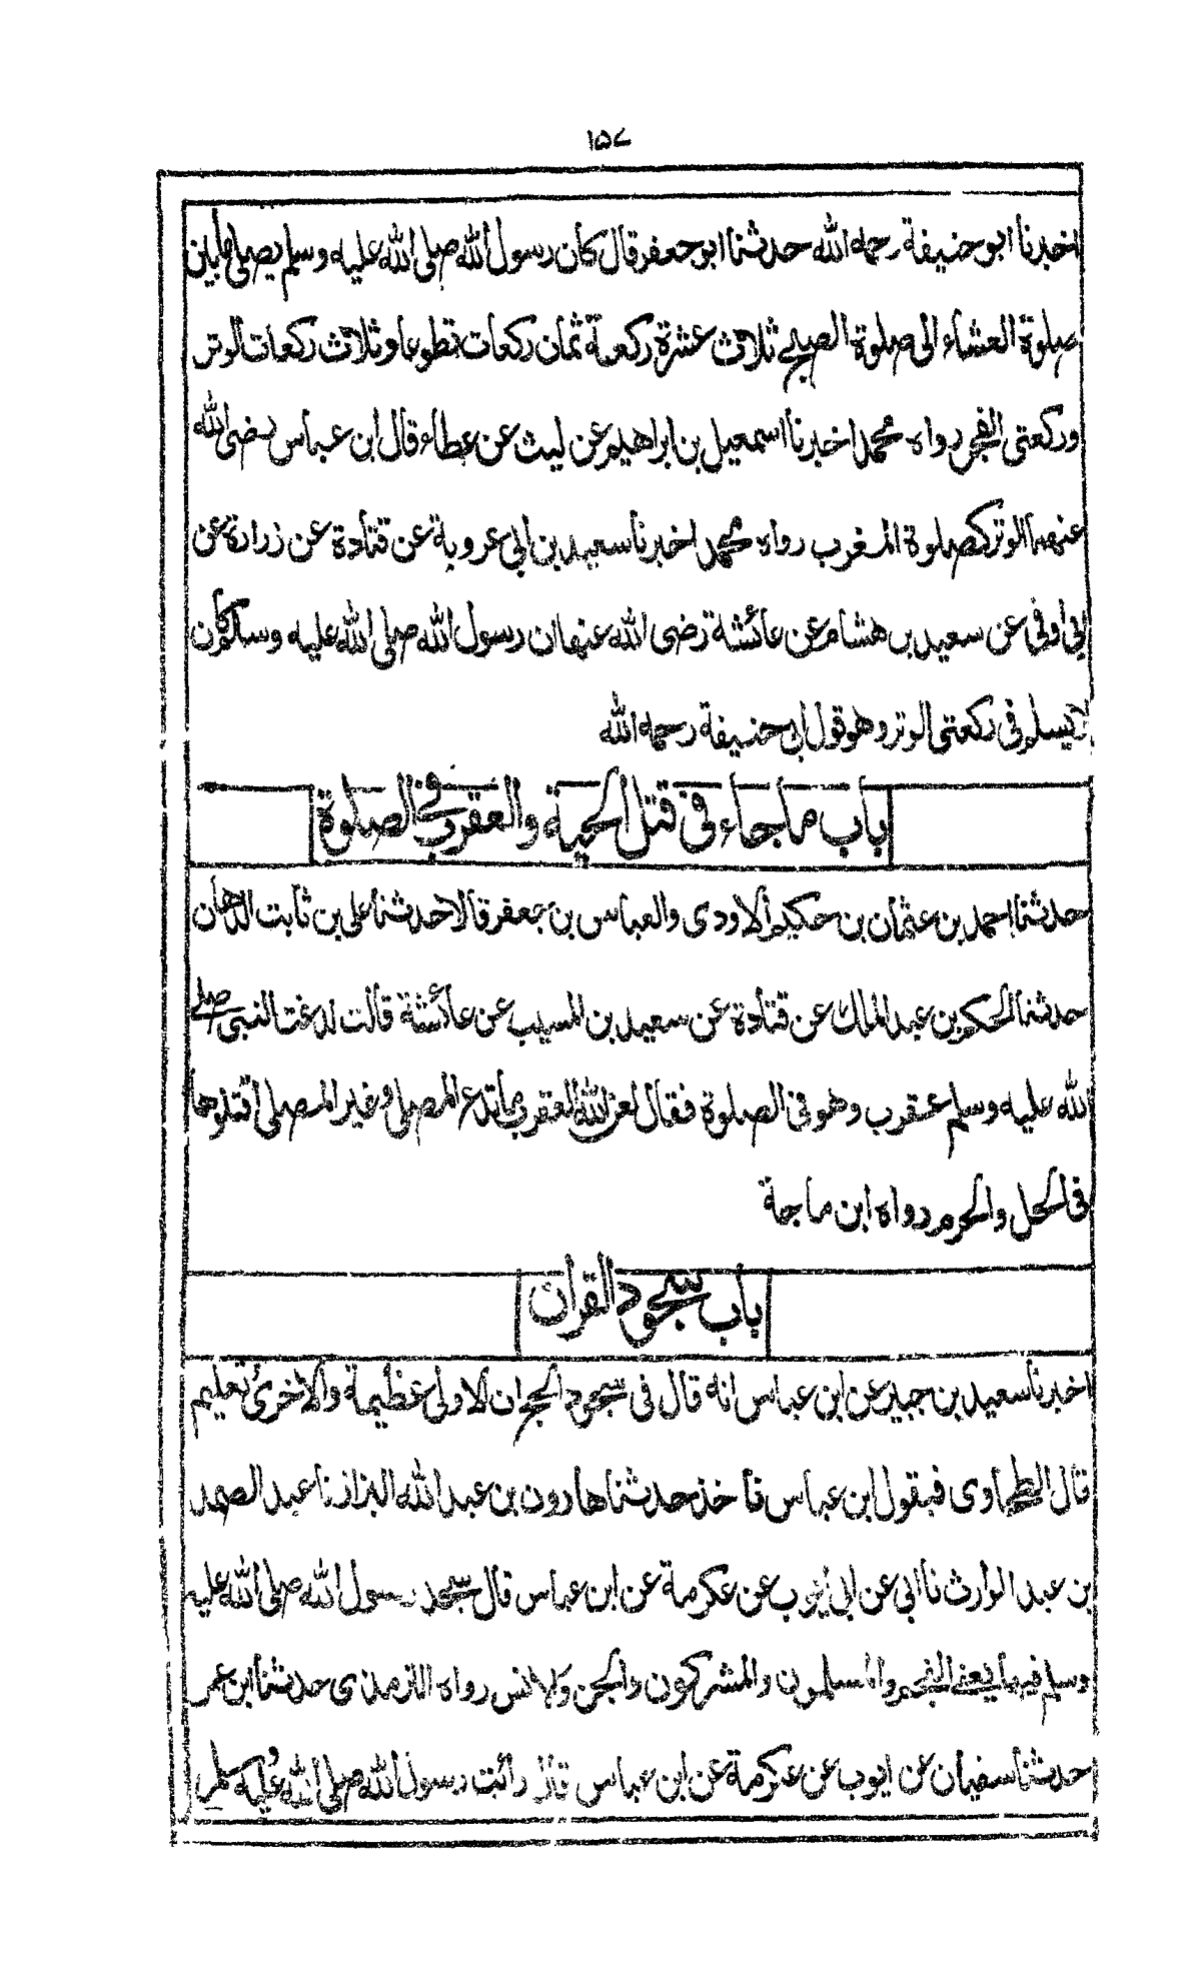 ۱۵۷
اخبرنا ابو حنيفة رحمه الله حدثنا ابو جعفر قال كان رسول الله صلى الله عليه وسلم يصلى مابين
صلوة العشاء الى صلوة الصبح ثلاث عشرة ركعة ثمان ركعات تطوعا وثلاث ركعات الوتر
وركعتى الفجر رواه محمد اخبرنا اسمعيل بن ابراهيم عن ليث عن عطاء قال ابن عباس رضى الله
عنهما الوتر كصلوة المغرب رواه محمد اخبرنا سعيد بن ابى عروبة عن قتادة عن زرارة عن
ابى اوفى عن سعيد بن هشام عن عائشة رضى الله عنها ان رسول الله صلى الله عليه وسلم كان
لا يسلم فى ركعتى الوتر وهو قول ابى حنيفة رحمه الله
باب ماجاء فى قتل الحية والعقرب فى الصلوة
حدثنا احمد بن عثمان بن حكيم الاودى والعباس بن جعفر قالا حدثنا على بن ثابت الدهان
حدثنا الحكم بن عبد الملك عن قتادة عن سعيد بن المسيب عن عائشة قالت لدغت النبى صلى
الله عليه وسلم عقرب وهو فى الصلوة فقال لعن الله العقرب ماتدع المصلى وغير المصلى اقتلوها
فى الحل والحرم رواه ابن ماجة
باب سجود القران
اخبرنا سعيد بن جبير عن ابن عباس انه قال فى سجود الحج ان الاولى عظيمة والاخرى تعليم
قال الطحاوى فبقول ابن عباس ناخذ حدثنا هارون بن عبد الله البزاز نا عبد الصمد
بن عبد الوارث نا ابى عن ابى ايوب عن عكرمة عن ابن عباس قال سجد رسول الله صلى الله عليه
وسلم فيها يعنى النجم والمسلمون والمشركون والجن والانس رواه الترمذى حدثنا ابن عمر
حدثنا سفيان عن ايوب عن عكرمة عن ابن عباس قال رائت رسول الله صلى الله عليه وسلم